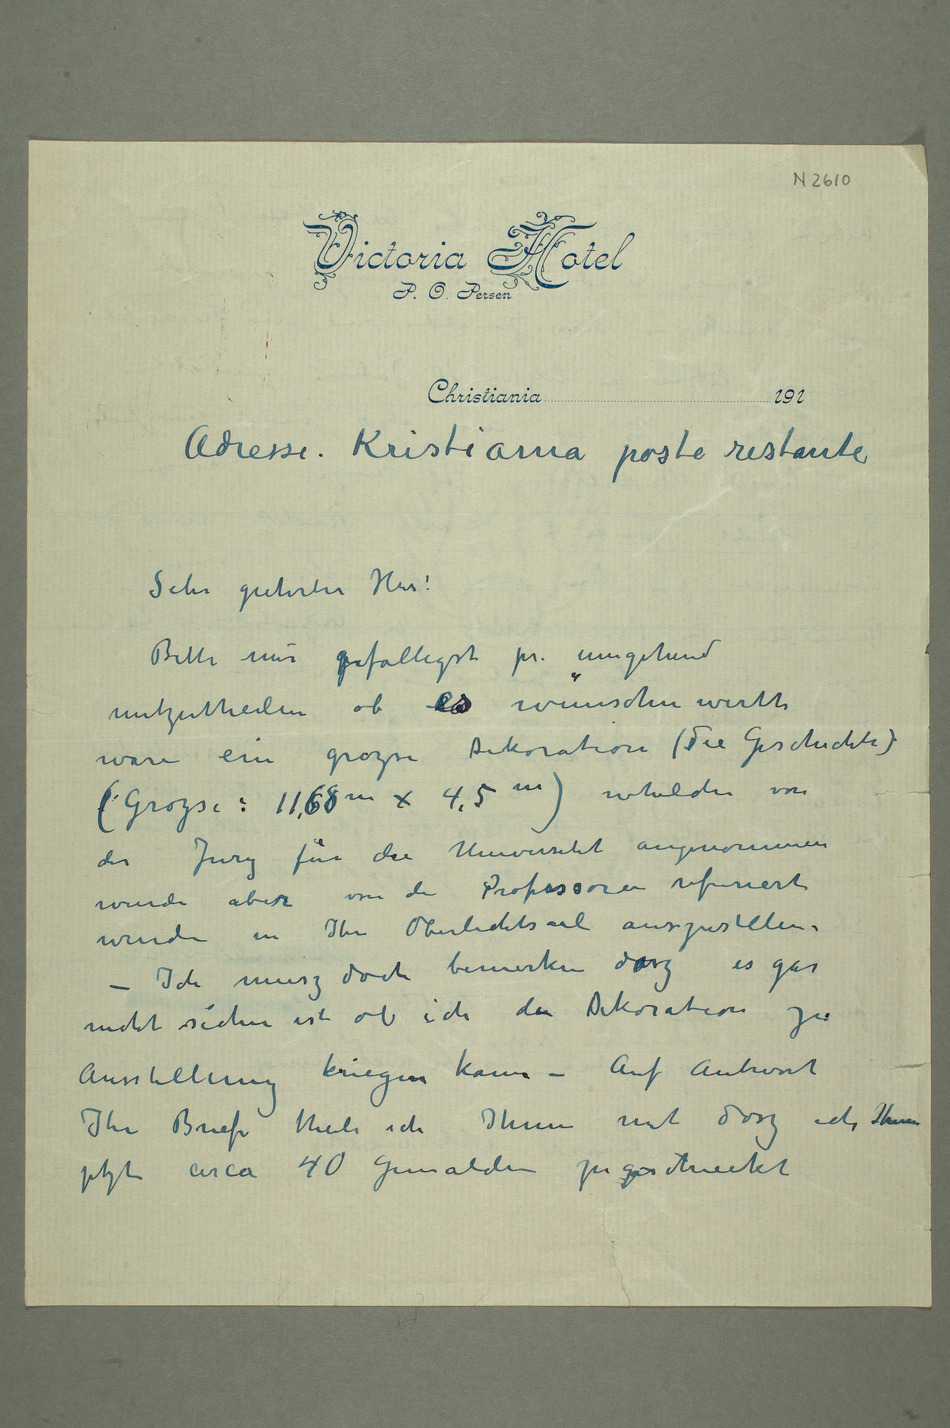 N 2610
Victoria Hotel
P. O. Persen
Christiania 191
Adresse. Kristiania poste restante
Sehr geehrter Herr!
Bitte mir gefälligst pr. umgehend
mitzutheilen ob es wünschenwerth
wäre ein grozse Dekoration (Die Geschichte)
(Grozse: 11,68 m x 4,5 m) whelche von
der Jury für die Universitet angenommen
wurde aber von de Professoren refusiert
wurde in Ihr Oberlichtsaal auszustellen.
– Ich musz doch bemerken dasz es gar
nicht sicher ist ob ich die Dekoration zu
Ausstellung kriegen kann – Auf Antwort
Ihr Briefe theile ich Ihnen mit dasz ich Ihnen
jetzt circa 40 Gemälden zugeschieckt